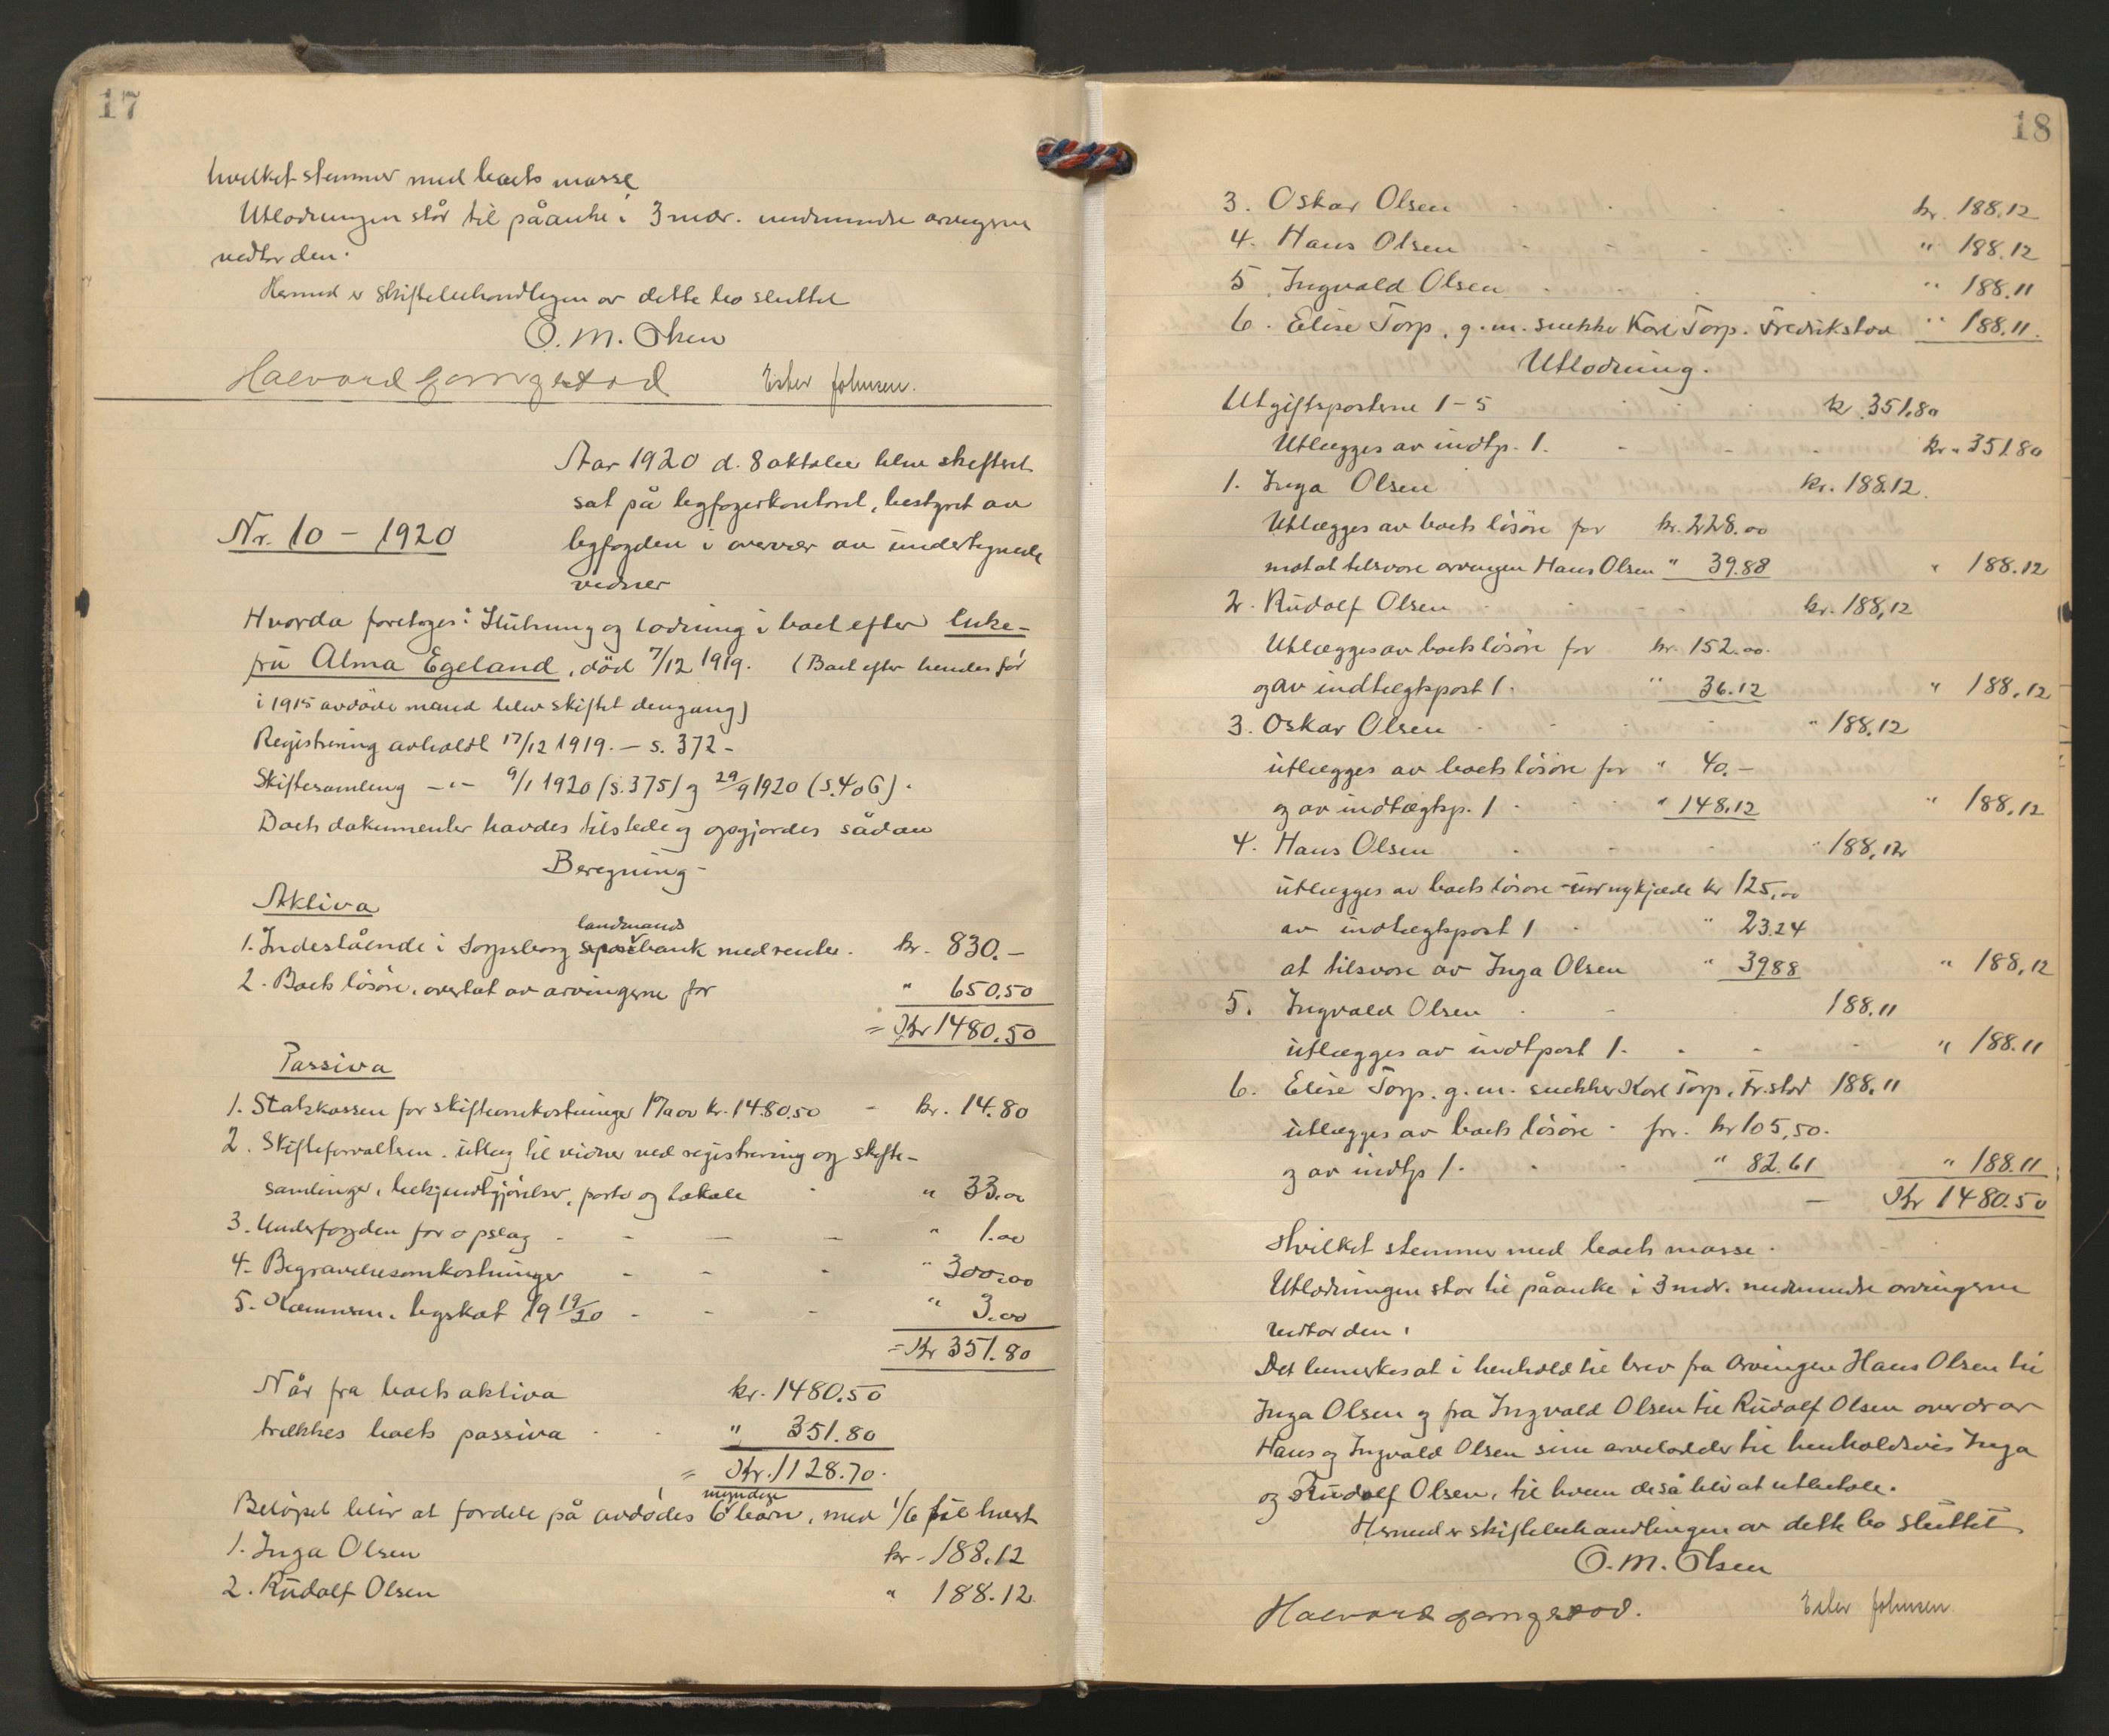 17
hvilket stemmer med boets masse
Utlodningen står til påanke i 3 mdr. medmindre arvingerne
vedtar den.
Hermed er skiftebehandlingen av dette bo sluttet
O. M. Olsen
Halvard Ester Johnsen.
Aar 1920 d. 8 oktober blev skifteret
sat på bygfogedkontoret, bestyret av
Nr. 10 - 1920
byfogden i overvær av undertegnede
vidner
Hvorda foretoges: Slutning og lodning i boet efter enke-
frü Alma Egeland, död 7/12 1919. (Boet efter hendes før
i 1915 avdöde mand blev skiftet dengang)
Registrering avholdt 17/12 1919. - s. 372 -
Skiftesamling -"- 9/1 1920 (s. 375) og 29/9 1920 (s. 406).
Boets dokumenter havdes tilstede og opgjordes sådan
Beregning -
Aktiva
landmands
1. Indestående i Sarpsborg bank med renter. kr. 830.-
2. Boets lösöre, overtat av arvingerne for " 650.50
= Kr 1480.50
Passiva
1. Statskassen for skifteomkostninger 1% av kr. 1480.50 - kr. 14.80
2. Skifteforvalteren. utlæg til vidner ved registrering og skifte-
samlinger, bekjendtgjörelser, porto og lokale " 33.00
3. Underfogden for opslag - - - - " 1.00
4. Begravelsesomkostninger - - - " 300.00
5. Kæmneren. byskat 19 19/20 - - - " 3.00
= Kr 351.80
Når fra boets aktiva kr. 1480.50
trækkes boets passiva " 351.80
= Kr. 1128.70.
myndige
Belöpet blir at fordele på avdödes 6 barn, med 1/6 til hvert
1. Inga Olsen kr - 188.12
2. Rüdolf Olsen " 188.12
18
3. Oskar Olsen kr. 188.12
4. Hans Olsen " 188.12
5. Ingvald Olsen " 188.11
6. Elise Torp, g. m. snekker Karl Torp. Fredrikstad " 188.11.
Utlodning.
Utgiftsposterne 1-5 kr. 351.80
Utlægges av indtp. 1. kr. 351.80
1. Inga Olsen kr. 188.12.
Utlægges av boets lösöre for kr. 228.00
mot at tilsvare arvingen Hans Olsen " 39.88 " 188.12
2. Rüdolf Olsen kr. 188,12
Utlægges av boets lösöre for kr. 152.00.
og av indtægtspost 1. " 36.12 " 188.12
3. Oskar Olsen " 188.12
utlægges av boets lösöre for " 40.-
og av indtægtsp. 1 " 148.12 " 188.12
4. Hans Olsen " 188,12
utlægges av boets lösöre - ur og kjæde kr 125,00
av indtægtspost 1 " 23.24
at tilsvare av Inga Olsen " 39.88 " 188,12
5. Ingvald Olsen 188.11
utlægges av indtpost 1. " 188.11
6. Elise Torp. g. m. snekker Karl Torp, Fr.stad 188.11
utlægges av boets lösöre - for kr 105,50.
og av indtp 1. " 82.61 " 188.11
- Kr 1480.50
Hvilket stemmer med boets masse.
Utlodningen står til påanke i 3 mdr. medmindre arvingerne
vedtar den.
Det bemerkes at i henhold til brev fra arvingen Hans Olsen til
Inga Olsen og fra Ingvald Olsen til Rüdolf Olsen overdrar
Hans og Ingvald Olsen sine arvelodder til henholdsvis Inga
og Rüdolf Olsen, til hvem de så blir at utbetale.
Hermed er skiftebehandlingen av dette bo sluttet
O. M. Olsen
Halvard Ester Johnsen